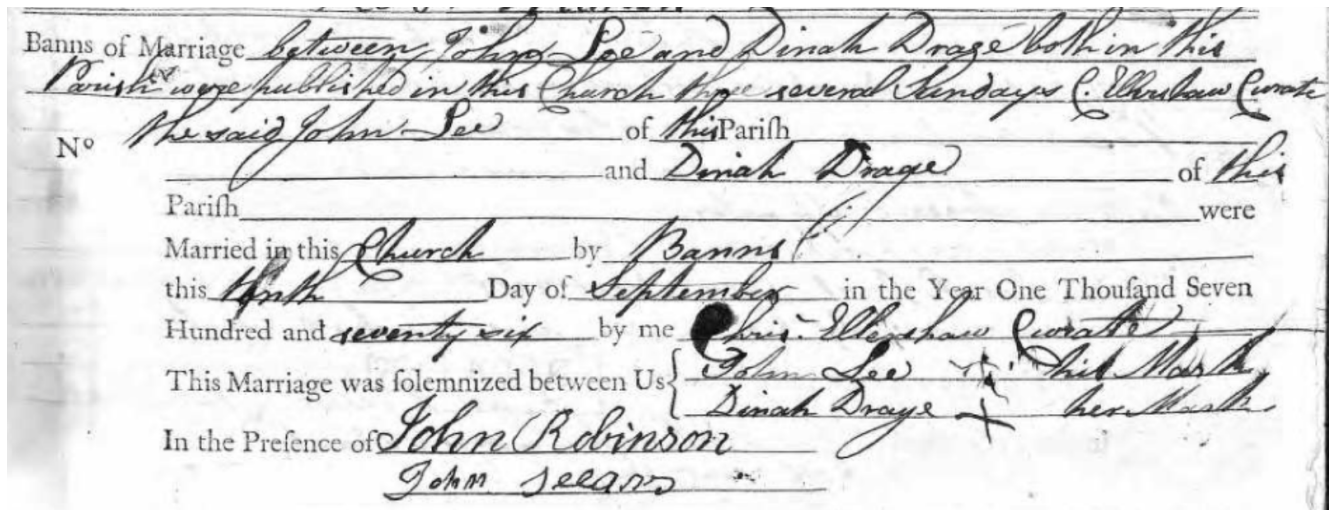 Banns of Marriage between John Lee and Dinah Drage both in this
Parish were published in this Church three several Sundays C. Ellershaw Curate
No the said John Lee of this Pariſh
and Dinah Drage of this
Pariſh were
Married in this Church by Banns
this tenth Day of September in the Year One Thouſand Seven
Hundred and seventy six by me Chris. Ellershaw Curate
This Marriage was ſolemnized between Us { John Lee X his Mark
Dinah Drage X her Mark
In the Preſence of John Robinson
John